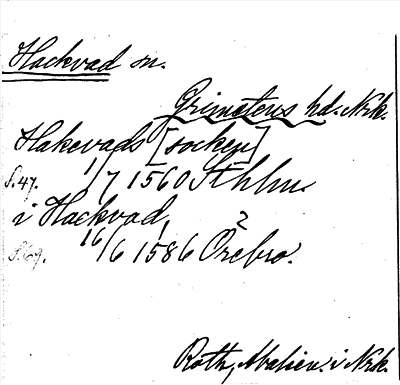 Hackvad sn.
Grimstens hd. Nrk.
Hakevads [socken]
S.47. 1/7 1560 Sthlm.
i Hackvad,
S.69. 16/6 1586 Örebro. 2
Roth, i Nrk.